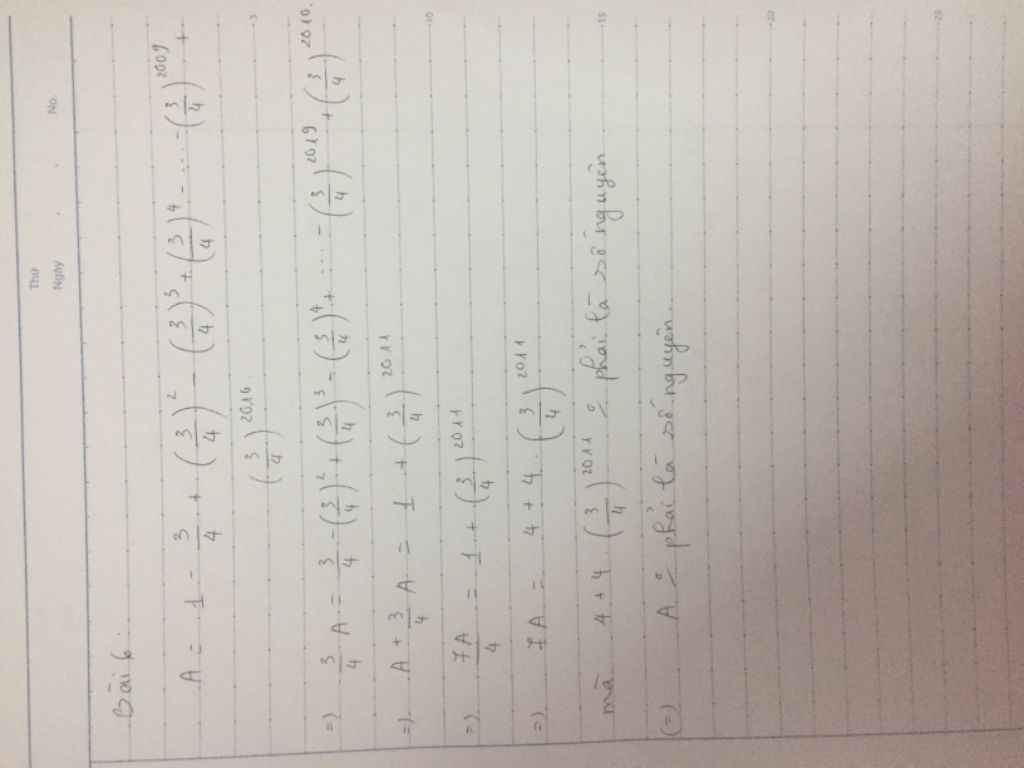 Thứ
Ngày . . No.
Bài 6:
A = 1 - \frac{3}{4} + (\frac{3}{4})^2 - (\frac{3}{4})^3 + (\frac{3}{4})^4 - ... - (\frac{3}{4})^{2009} +
(\frac{3}{4})^{2010}.
=) \frac{3}{4} A = \frac{3}{4} - (\frac{3}{4})^2 + (\frac{3}{4})^3 - (\frac{3}{4})^4 + .... - (\frac{3}{4})^{2019} + (\frac{3}{4})^{2010}.
=) A + \frac{3}{4} A = 1 + (\frac{3}{4})^{2011}
=) \frac{7A}{4} = 1 + (\frac{3}{4})^{2011}
=) 7A = 4 + 4 . (\frac{3}{4})^{2011}
mà 4 + 4 . (\frac{3}{4})^{2011} phải là số nguyên
(=) A phải là số nguyên.
5
10
15
20
25